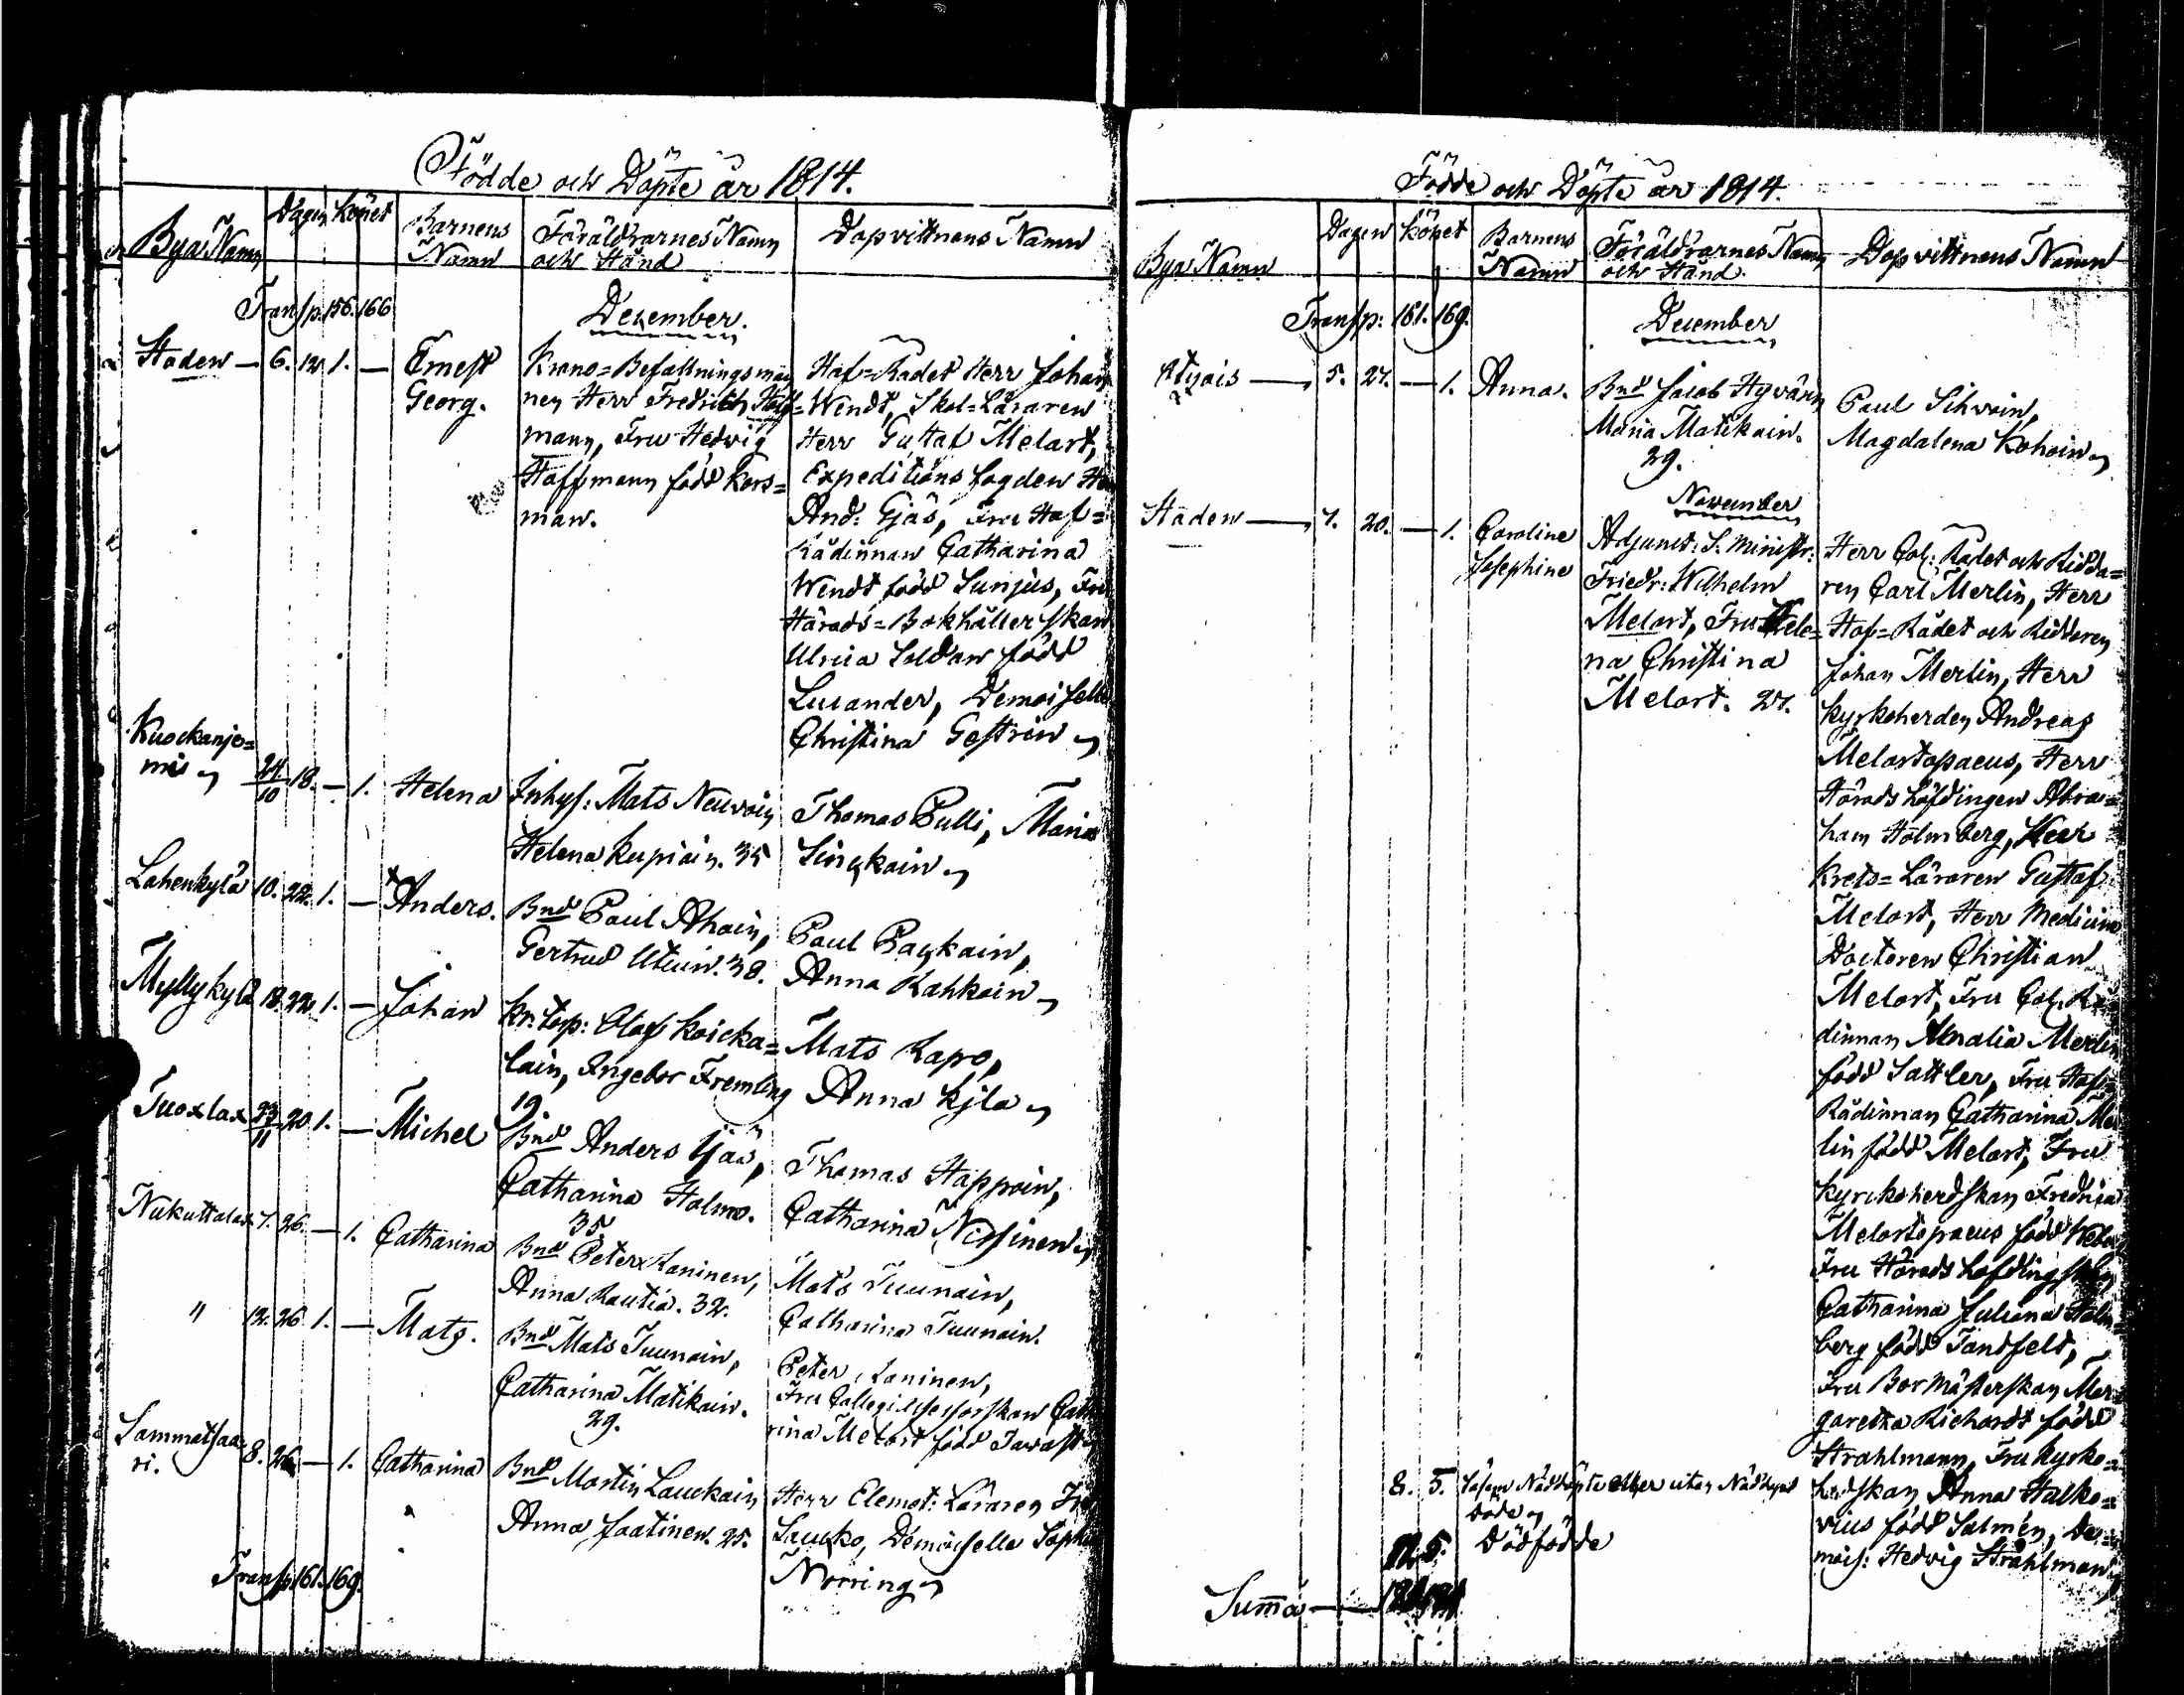 Födde och Döpte år 1814.
Bya Namn
Dagen
Könet
Barnens
Namn
Föräldrarnes Namn
och Stånd
Dopvittnens Namn
Transp. 156. 166
December.
Staden — 6. 12. 1. — Ernest
Georg.
Krono=Befallningsman
nen Herr Fredrich Hoff=
mann, Fru Hedwig
Hoffmann född Kors=
man.
Hof=Rådet Herr Johan
Wendt, Skol=Läraren
Herr Gustaf Melart,
Expeditions fogden Herr
And: Gjös, Fru Hof=
Rådinnan Catharina
Wendt född Sunjus, Fru
Härads=Bokhållerskan
Ulrica Soldan född
Lucander, Demoiselle
Christina Gestrin
Kuockanje=
mi 24/10 18. — 1. Helena
Inhys: Mats Neuvoin
Helena Kupiain. 35
Thomas Pulli, Maria
Sinckoin
Lahenkylä 10. 22. 1. — Anders.
Bnd Paul Ahoin,
Gertrud Utiain. 38.
Paul Paykain,
Anna Kahkoin
Myllykylä 18. 22. 1. — Johan
Kr. Torp: Olof Koicka=
lain, Ingebor Fremling
19
Mats Rapo,
Anna Kjla
Tuoxlax 23/11 20. 1. — Michel
Bnd Anders Ijäs,
Catharina Holmo.
35.
Thomas Happoin,
Catharina Nissinen
Nukuttalax 7. 26. — 1. Catharina
Bnd Peter Laninen,
Anna Rautia. 32.
Mats Tuunain,
Catharina Tuunain.
" 12. 26. 1. — Mats.
Bnd Mats Tuunain,
Catharina Matikain.
29.
Peter Laninen,
Fru Collegi Assessorskan Catha
rina Melart född Tavast
Sammatsaa=
ri. 8. 26. — 1. Catharina
Bnd Martin Lauckain
Anna Jaatinen. 25.
Herr Element: Läraren
Saucko, Demoiselle Sophia
Norring
Transp. 161. 169.
Födde och Döpte år 1814.
Bya Namn
Dagen
Könet
Barnens
Namn
Föräldrarnes Namn
och Stånd.
Dopvittnens Namn
Transp: 161. 169.
December
5. 27. — 1. Anna.
Bnd Jacob Hyvän
Maria Matikain.
29.
Paul Sihvoin,
Magdalena Kohoin
November
Staden — 7. 20. — 1. Caroline
Josephine
Adjunct: S. Ministr:
Friedr: Wilhelm
Melart, Fru Hele=
na Christina
Melart. 27.
Herr Col: Rådet och Ridda=
ren Carl Merlin, Herr
Hof=Rådet och Riddaren
Johan Merlin, Herr
Kyrkoherden Andreas
Melartopaeus, Herr
Härads Höfdingen Abra=
ham Holmberg, Herr
Krets=Läraren Gustaf
Melart, Herr Medicine
Doctoren Christian
Melart, Fru Col. Rå=
dinnan Amalia Merlin
född Sattler, Fru Hof=
Rådinnan Catharina Mer
lin född Melart, Fru
Kyrckoherdskan Fredrica
Melartopaeus född
Fru Härads Höfdingskan
Catharina Juliana Holm=
berg född Tandefelt,
Fru Bormästerskan Mar=
garetha Richardt född
Strahlmann, Fru Kyrko=
herdskan Anna Stalko=
vius född Salmén, De=
mois: Hedwig Strahlman
8. 5. Såsom Nöddöpte eller utan Nöddop
döde
12. 5. Dödfödde
Summa —